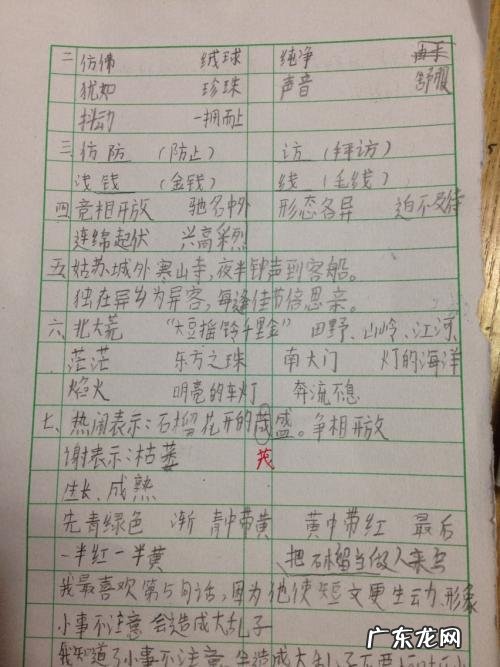 二 仿佛 绒球 纯净
犹如 珍珠 声音 舒服
抖动 一拥而上
三 仿 防 (防止) 访 (拜访)
浅 钱 (金钱) 线 (毛线)
四 竞相开放 驰名中外 形态各异 迫不及待
连绵起伏 兴高采烈
五 姑苏城外寒山寺,夜半钟声到客船。
独在异乡为异客,每逢佳节倍思亲。
六、北大荒 “大豆摇铃千里金” 田野、山岭、江河
茫茫 东方之珠 南大门 灯的海洋
焰火 明亮的车灯 奔流不息
七、热闹表示:石榴花开的茂盛。争相开放
谢表示:枯萎 茂
生长、成熟
先青绿色 渐 青中带黄 黄中带红 最后
一半红一半黄 把石榴当做人来写
我最喜欢第5句话,因为他使短文更生动、形象
小事不注意会造成大乱子
我知道了小事不注意,会造成大乱子
广东龙网